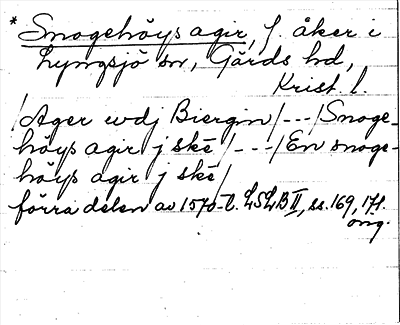 * Snogehöys agir, f. åker i
Lyngsjö sn, Gärds hd,
Krist. l.
/Ager wdj Biergin/---/Snoge-
höys agir j ske/---/En snoge-
höys agir j ske/
förra delen av 1570-t. LSLB II, ss. 169, 171.
orig.